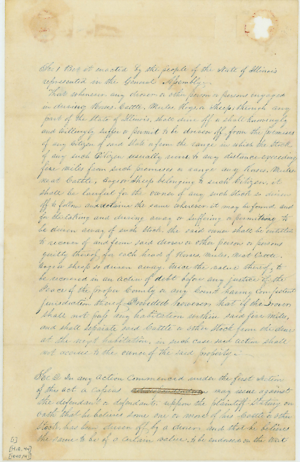 Sec 1 Be it enacted by the people of the State of Illinois
represented in the General Assembly
That whenever any drover or other person or persons engaged
in driving Horses, Cattle, Mules, Hogs or Sheep, through any
part of the State of Illinois, shall drive off or shall knowingly
and willingly suffer or permit to be driven off from the premises
of any citizen of said State or from the range in which the stock
of any such Citizen usually runs to any distance exceeding
five miles from such premises or range any Horses Mules
Neat Cattle, Hogs or Sheep belonging to such citizen, it
shall be lawful for the owner of any such stock so driven
off to follow and the same wherever it may be found, and
for the taking and driving away or suffering or permitting to
be driven away of such stock the said owner shall be entitled
to recover of and from said drover or other person or persons
guilty thereof, for each head of Horse Mule Neat Cattle
Hogs or sheep so driven away
be recovered in an action of debt before any Justice of the
Peace of the proper County or any Court having competent
jurisdiction thereof Provided However, that if the Drover
shall not pass any habitation within said five miles,
and shall separate said Cattle or other stock from his drove
at the next habitation, in such case no action shall
accrue to the owner of the said property.
Sec 2 In any Action Commenced under the first section
of this act a Capias may issue against
the defendant or defendants upon the plaintiff stating on
oath that he believes some one or more of his Cattle or other
Stock has been driven off by a drover, and that he believes
the same to be of a certain value, to be endorsed on the Writ